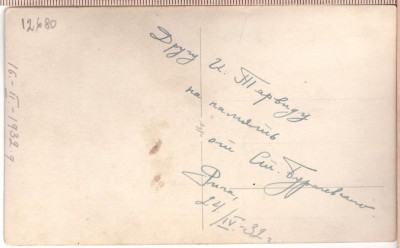 12680
16.-II-1932.g
Другу И. Тарвиду
на память
от Ст.
Рига,
24/IV-32 г.